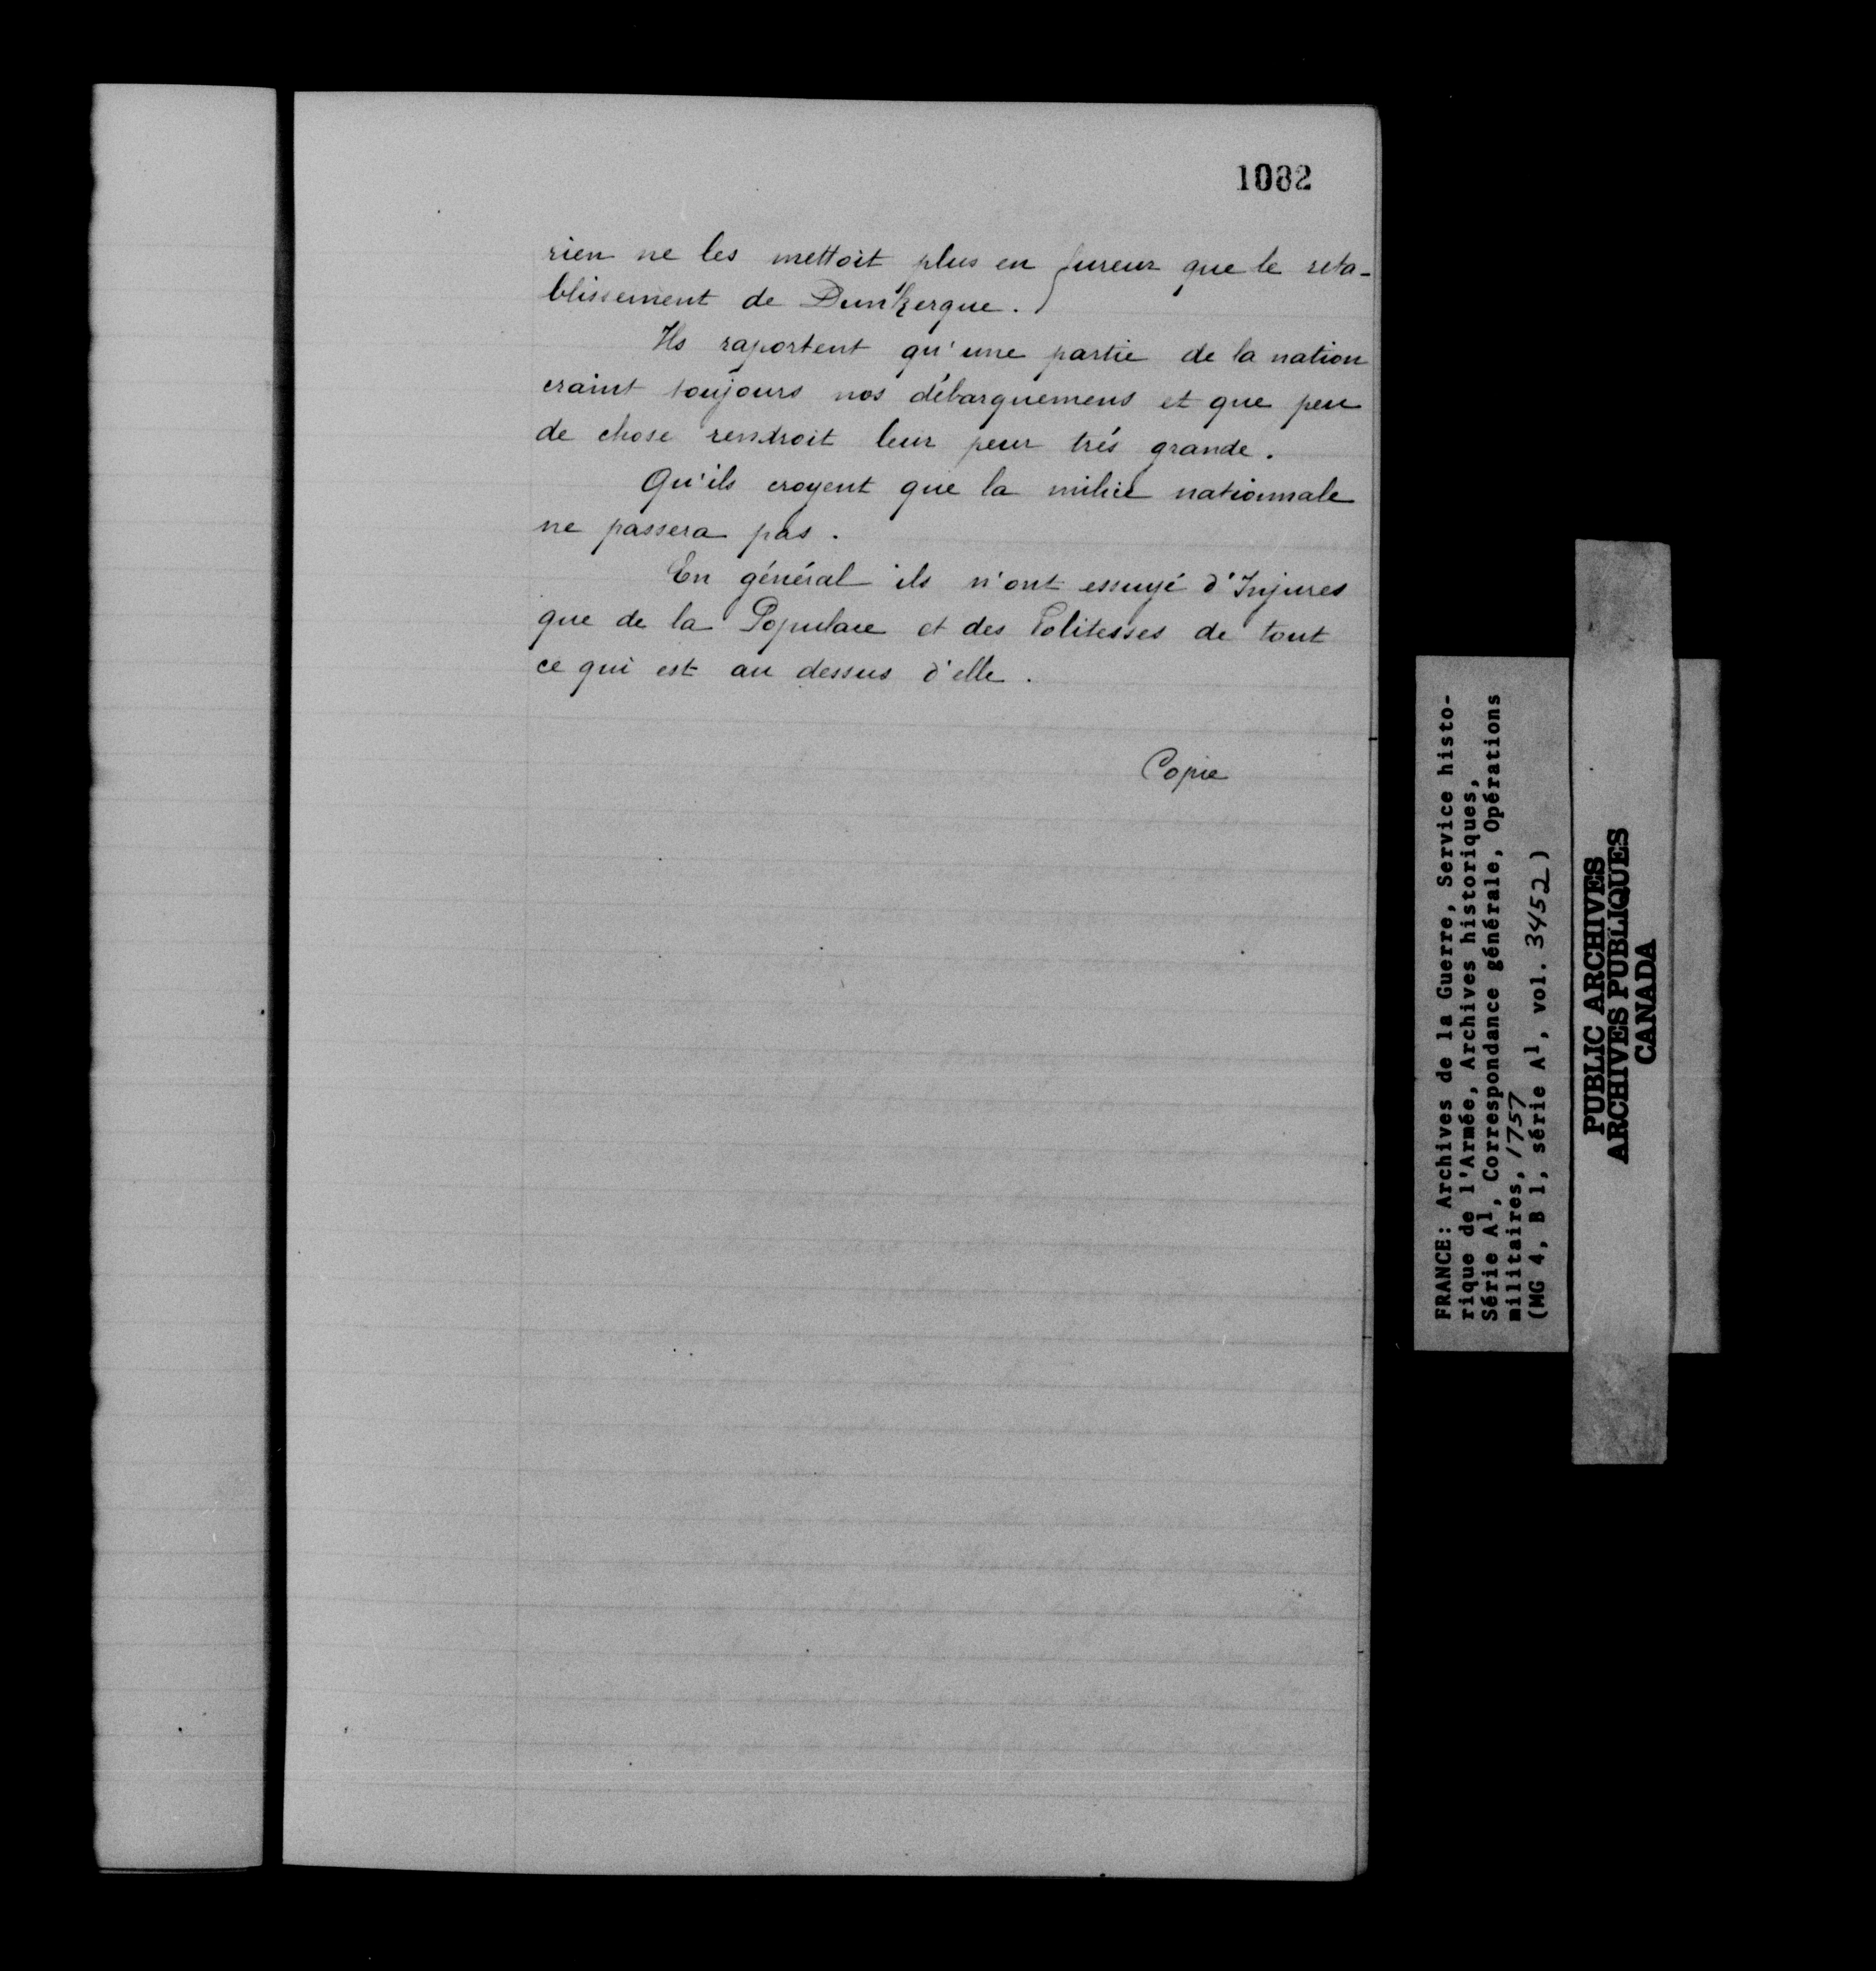 1082
rien ne les mettoit plus en fureur que le reta-
blissement de Dunkerque.
Ils raportent qu'une partie de la nation
craint toujours nos débarquemens et que peu
de chose rendroit leur peur trés grande.
Qu'ils croyent que la milice nationnale
ne passera pas.
En général ils n'ont essuyé d'Injures
que de la Populace et des Politesses de tout
ce qui est au dessus d'elle.
Copie
FRANCE: Archives de la Guerre, Service histo-
rique de l'Armée, Archives historiques,
Série A1, Correspondance générale, Opérations
militaires, 1757
(MG 4, B 1, série A1, vol. 3452)
PUBLIC ARCHIVES
ARCHIVES PUBLIQUES
CANADA